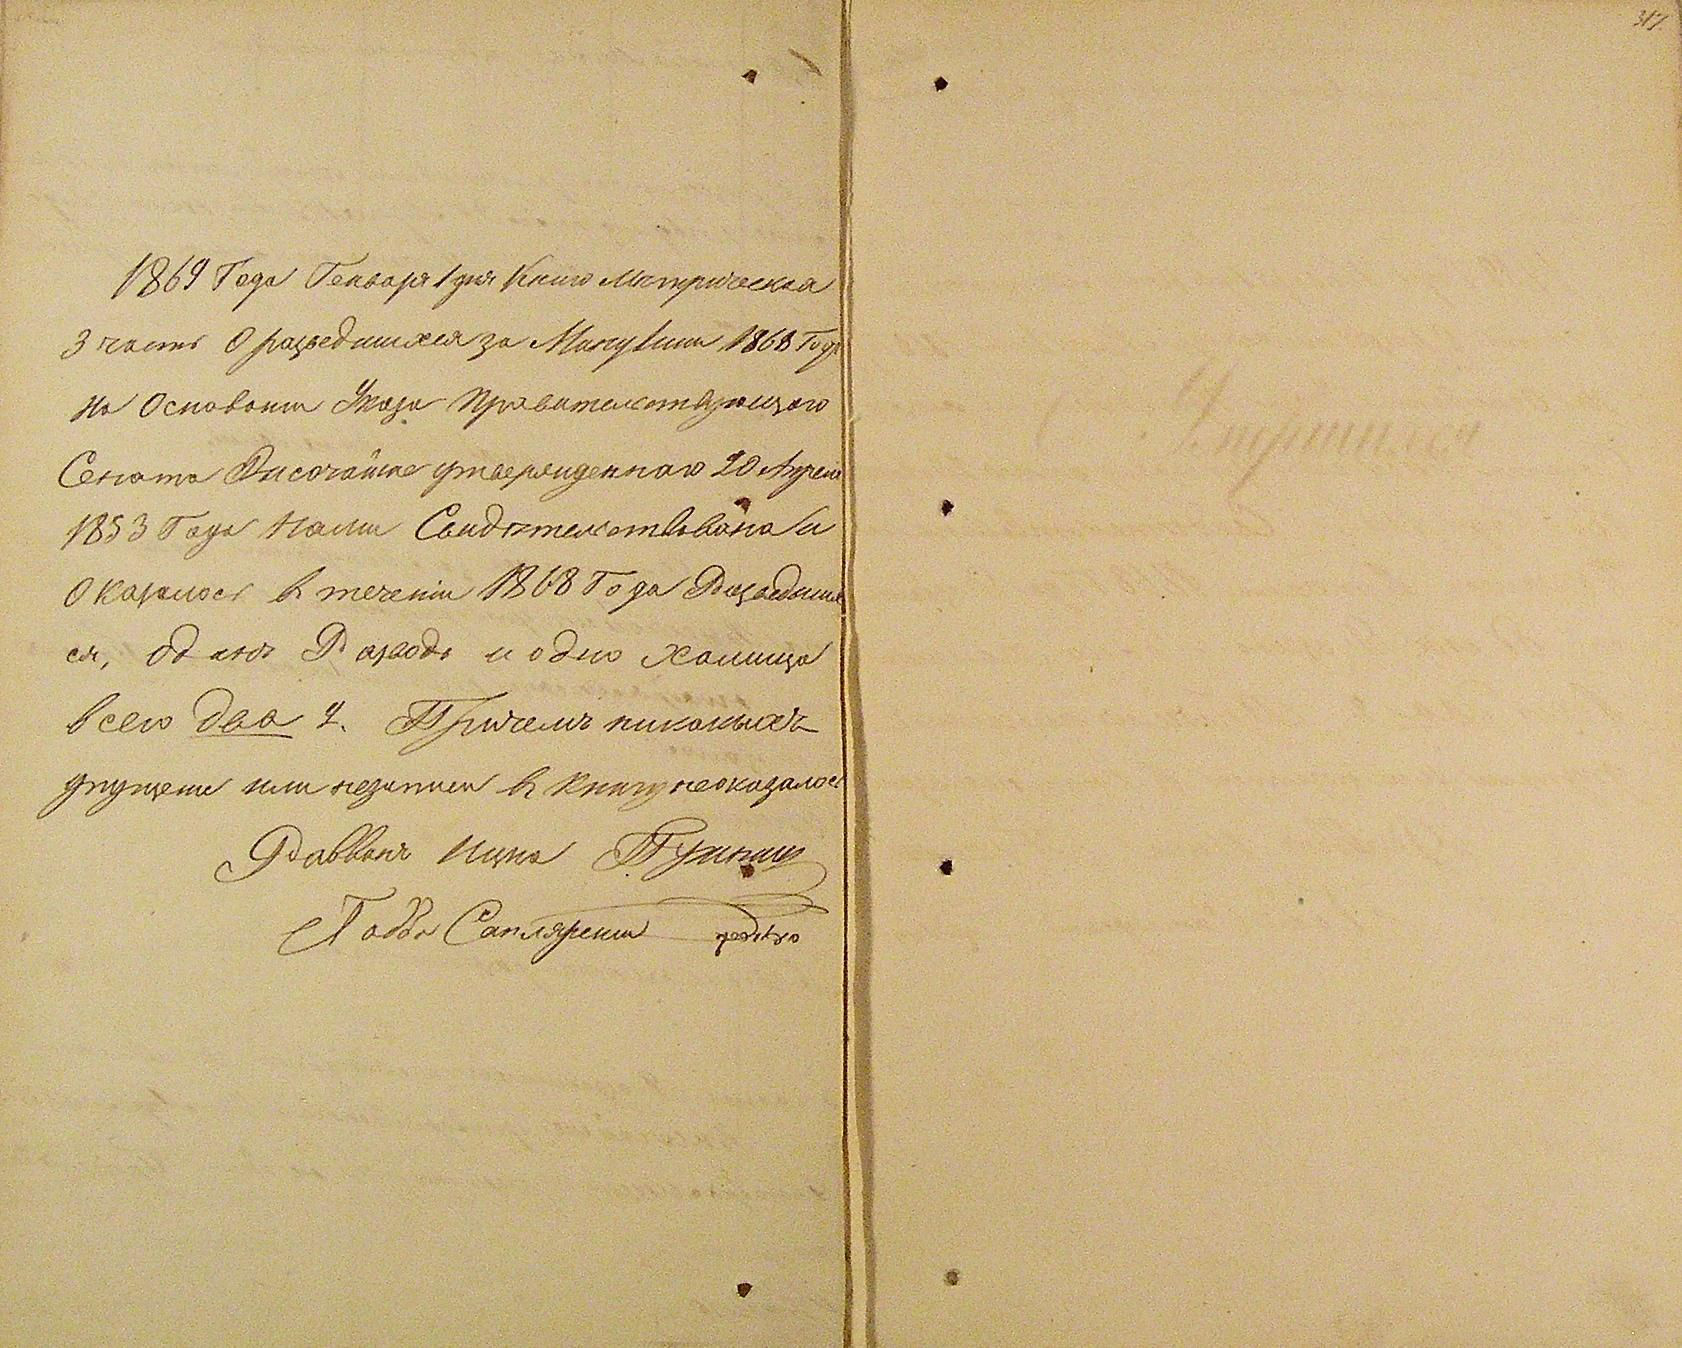 317
1869 Года Генваря 1 дня Книга Метрическая
3 часть О разведшихся за Минувши 1868 Годъ
На Основании Указа Правительствующаго
Сената Высочайше утвержденнаго 20 Апреля
1853 Года Нами Свидѣтельствована и
Оказалось в течении 1868 Года Разведших
ся, одинъ Разводъ и одно халицо
всего два 2. Причемъ никакихъ
упущени или незаписи в Книгу неоказалось
Раввинъ Ицко